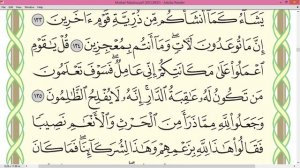 يَشَآءُ كَمَآ أَنشَأَكُم مِّن ذُرِّيَّةِ قَوْمٍ ءَاخَرِينَ ١٣٣
إِنَّ مَا تُوعَدُونَ لَءَاتٍ وَمَآ أَنتُم بِمُعْجِزِينَ ١٣٤ قُلْ يَٰقَوْمِ
ٱعْمَلُوا۟ عَلَىٰ مَكَانَتِكُمْ إِنِّى عَامِلٌ فَسَوْفَ تَعْلَمُونَ
مَن تَكُونُ لَهُۥ عَٰقِبَةُ ٱلدَّارِ إِنَّهُۥ لَا يُفْلِحُ ٱلظَّٰلِمُونَ ١٣٥
وَجَعَلُوا۟ لِلَّهِ مِمَّا ذَرَأَ مِنَ ٱلْحَرْثِ وَٱلْأَنْعَٰمِ نَصِيبًا
فَقَالُوا۟ هَٰذَا لِلَّهِ بِزَعْمِهِمْ وَهَٰذَا لِشُرَكَآئِنَا فَمَا كَانَ